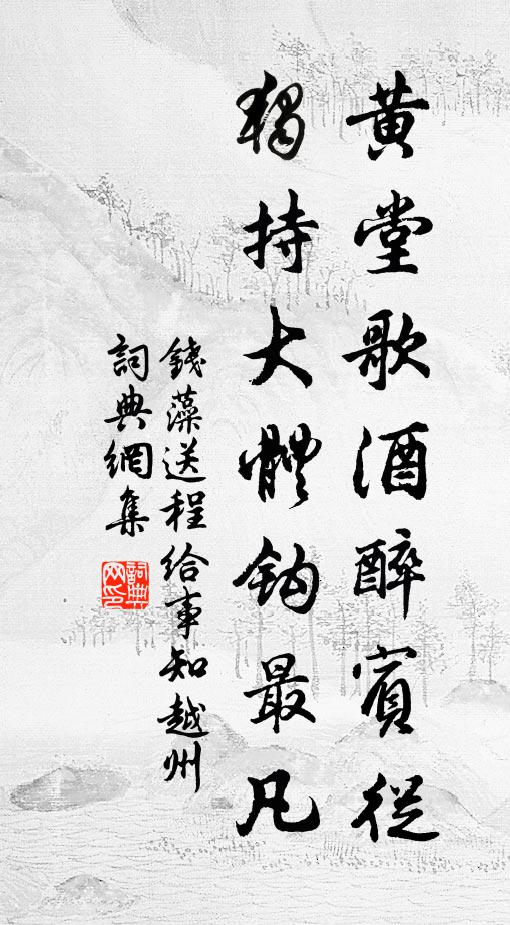 黃堂歌酒醉賓從
獨持大體鈎最凡
錢藻送程給事知越州
詞典網集
詞典網印